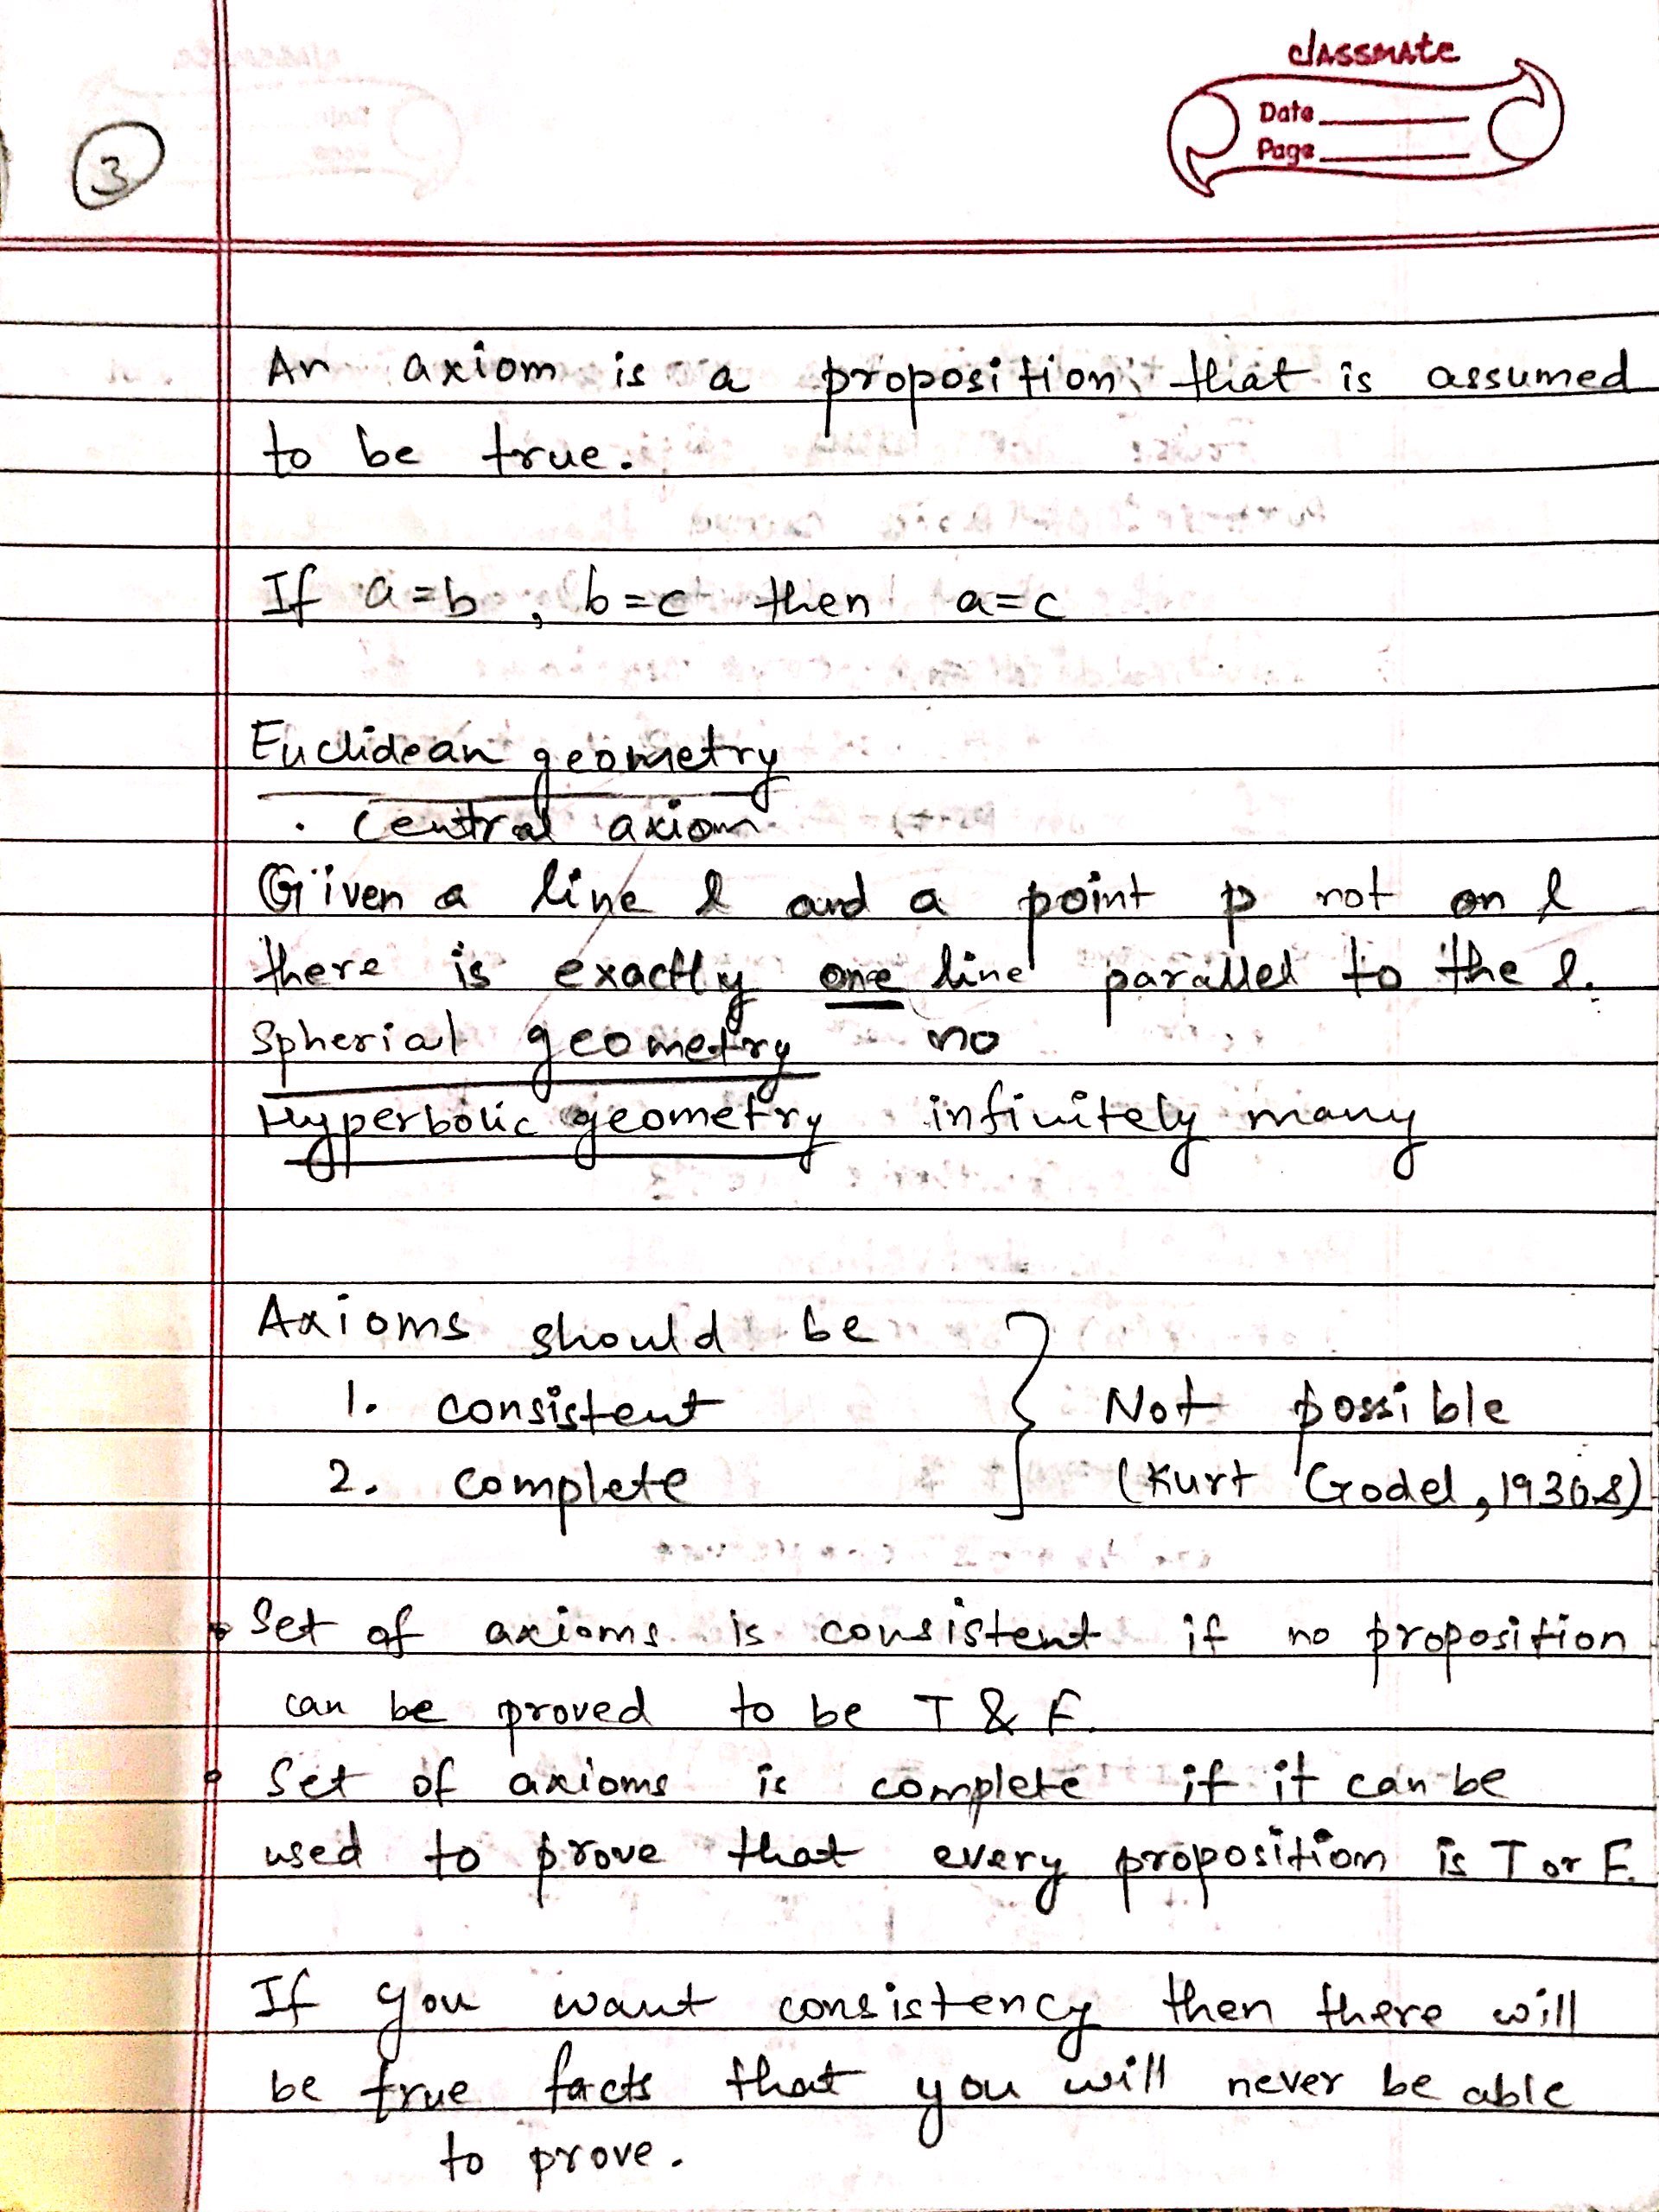 classmate
Date
Page
3
An axiom is a proposition that is assumed
to be true.
If a=b, b=c then a=c
Euclidean geometry
· Central axiom
Given a line l and a point p not on l
there is exactly one line parallel to the l.
Spherial geometry no
Hyperbolic geometry infinitely many
Axioms should be
1. consistent
2. complete
Not possible
(Kurt Godel, 1930s)
• Set of axioms is consistent if no proposition
can be proved to be T & F.
• Set of axioms is complete if it can be
used to prove that every proposition is T or F.
If you want consistency then there will
be true facts that you will never be able
to prove.